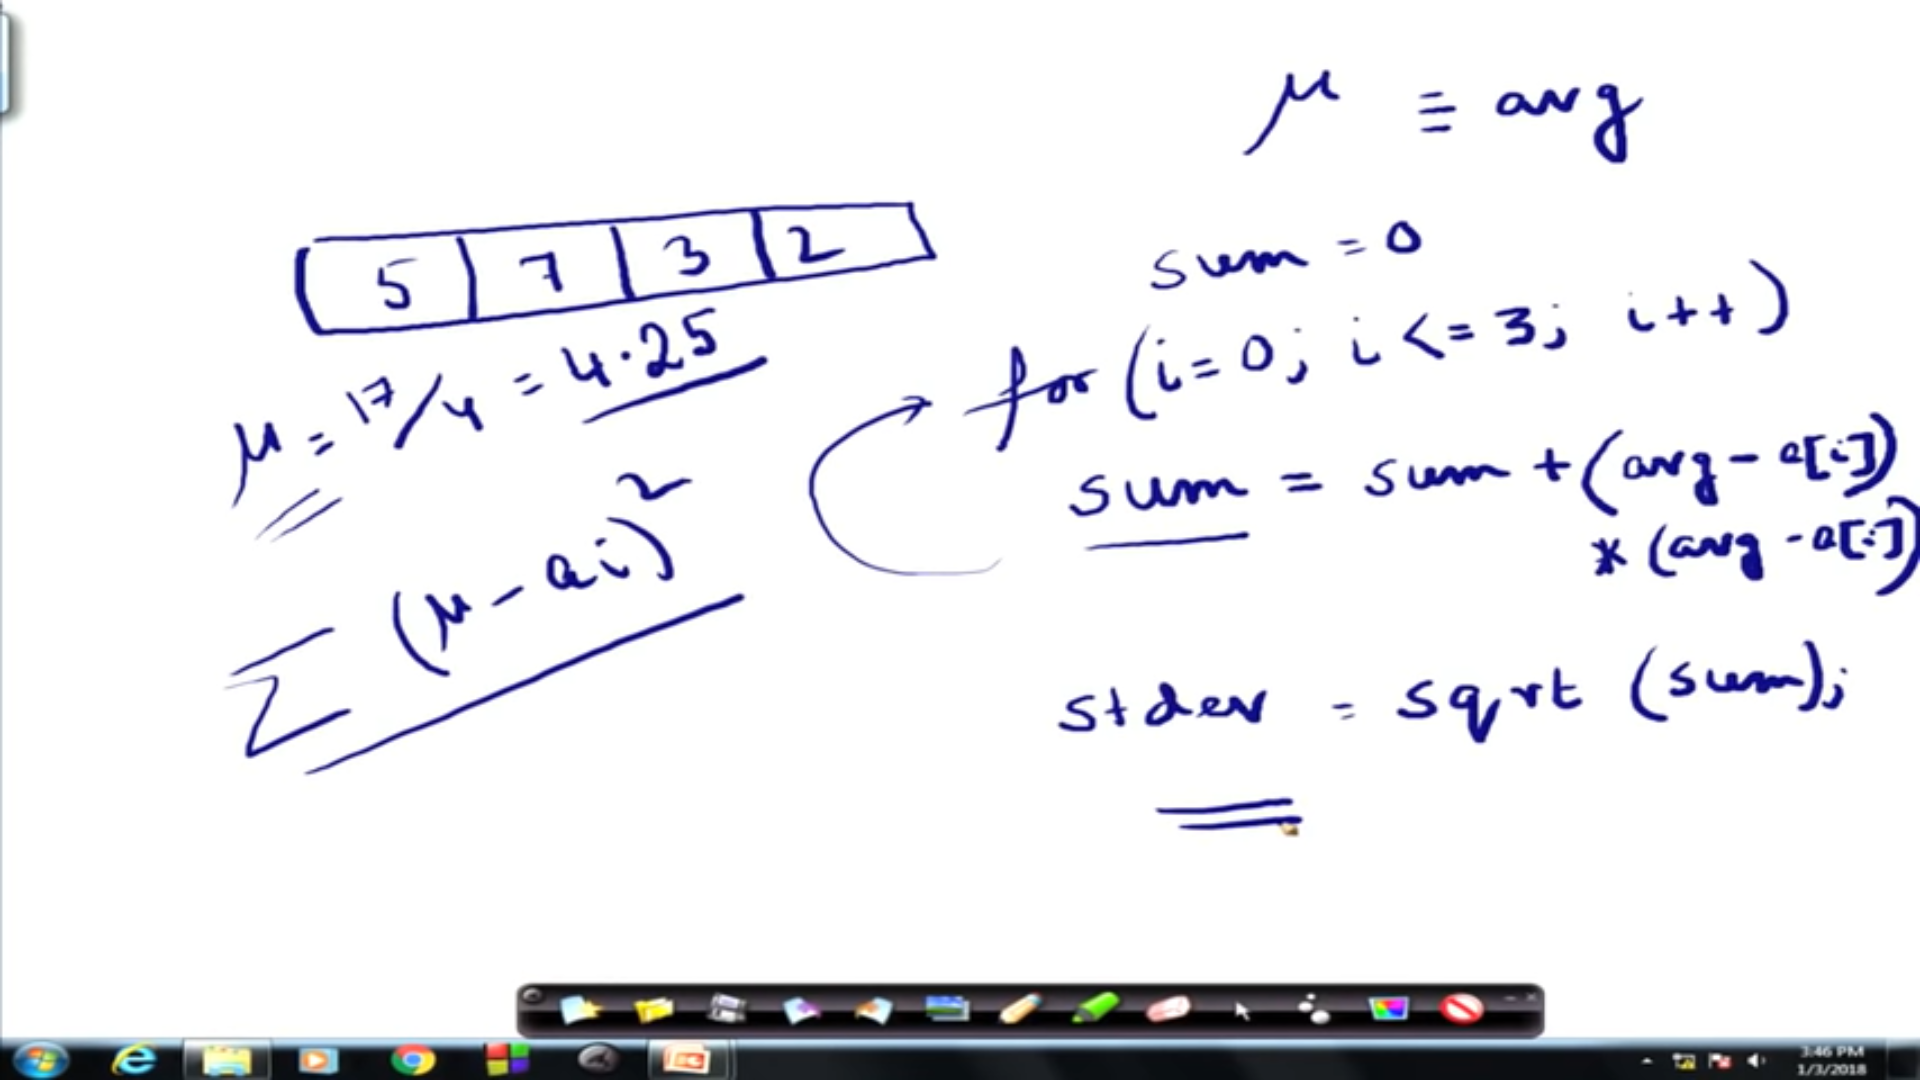 μ ≡ avg
5 7 3 2
μ = 17/4 = 4.25
Σ (μ - ai)²
sum = 0
for (i=0; i <= 3; i++)
sum = sum + (avg - a[i])
* (avg - a[i])
stdev = sqrt (sum);
3:46 PM
1/3/2018